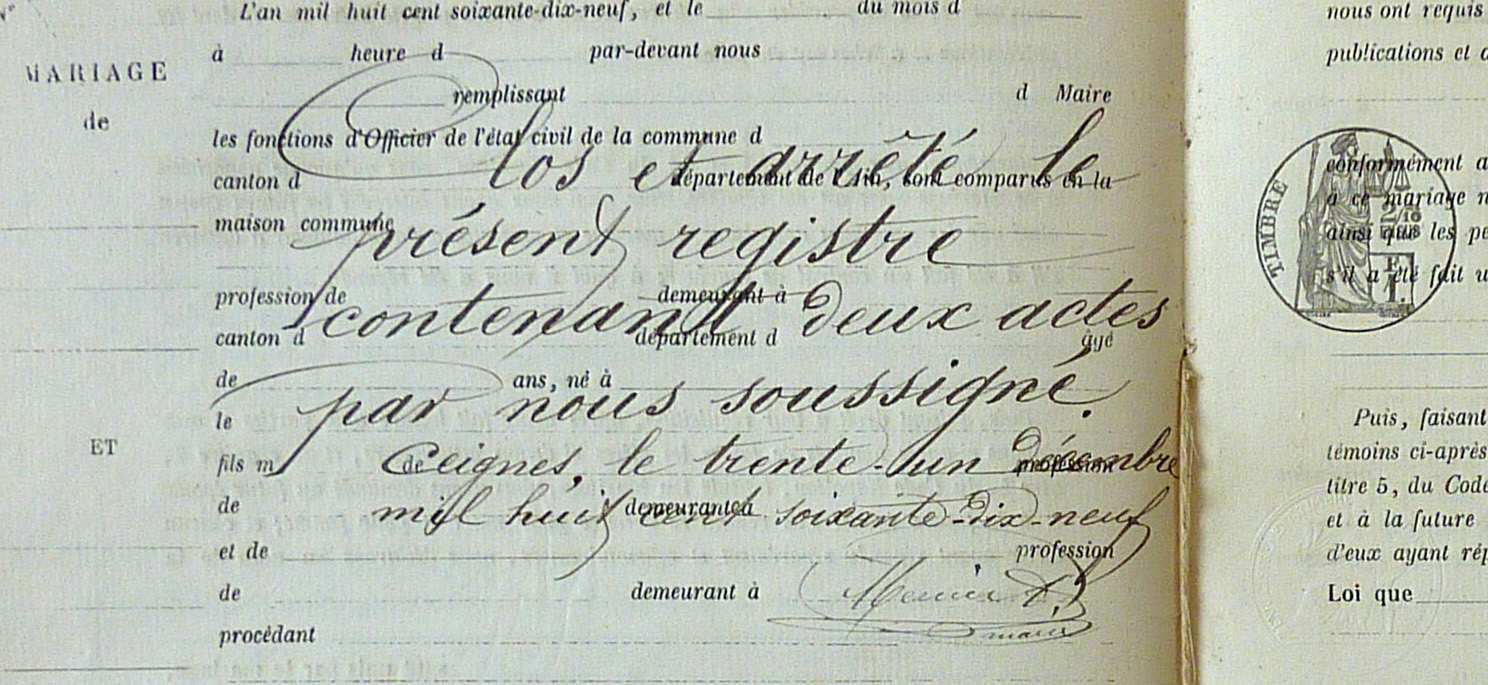 N°
L'an mil huit cent soixante-dix-neuf, et le du mois d
à heure d par-devant nous
MARIAGE
de
remplissant d Maire
les fonctions d'Officier de l'état civil de la commune d
Clos et arrêté le
canton d département de l'Ain, sont comparus en la
maison commune
présent registre
profession de demeurant à
contenant deux actes
canton d département d âgé
de ans, né à
par nous soussigné.
le
ET
fils m de profession
Ceignes, le trente-un décembre
de demeurant à
mil huit cent soixante-dix-neuf
et de profession
de demeurant à
maire
procédant
nous ont requis
publications et d
conformément a
à ce mariage n
ainsi que les pe
s'il a été fait u
TIMBRE
Puis, faisant
témoins ci-après
titre 5, du Code
et à la future
d'eux ayant rép
Loi que